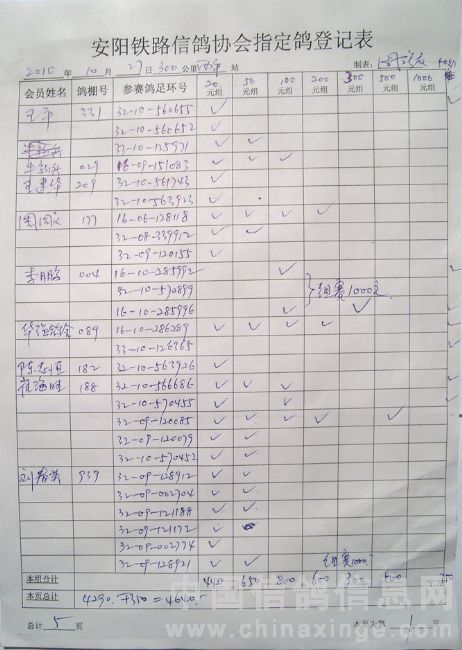 安阳铁路信鸽协会指定鸽登记表
2010 年 10 月 27 日 300 公里 站 制表:
会员姓名 鸽棚号 参赛鸽足环号 20元组 50元组 100元组 200元组 300元组 500元组 1000元组
331 32-10-560655 ✓
32-10-560652 ✓
33-10-125971 ✓ ✓
029 16-09-151083 ✓ ✓ ✓
209 32-10-561743 ✓
32-10-563923 ✓
177 16-06-128118 ✓ ✓ ✓ ✓
32-08-339912 ✓ ✓
32-09-120155 ✓
李月鹏 004 16-10-285992 ✓
32-10-570899 组赛1000元
16-10-285996 ✓ ✓
089 16-10-286289 ✓ ✓ ✓ ✓
33-10-126365 ✓
陈志恒 182 32-10-563926 ✓
崔海旺 188 32-10-566686 ✓ ✓ ✓
32-10-570455 ✓ ✓
32-09-120085 ✓ ✓ ✓ ✓ ✓
32-09-120079 ✓ ✓
32-10-570452 ✓ ✓
939 32-09-128912 ✓ ✓
32-09-002704 ✓ ✓
32-09-121188 ✓ ✓
32-09-121172 ✓
32-09-002774 ✓
32-09-128921 ✓ ✓ 组赛1000
本组合计 440 650 800 600 300 500
本页总计 4290 = 4640
总计 5 页 本页为第 1 页
中国信鸽信息网
www.chinaxinge.com